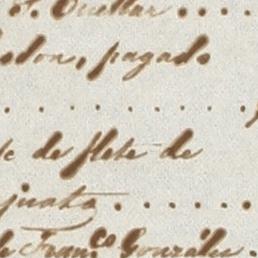 J. Cuellar ....
odon, pagado
. . . . . . . .
te de flete de
juato ......
de Fran.co Gonzáles.